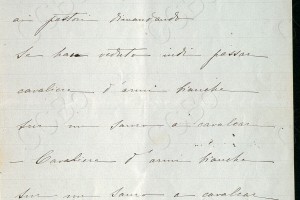 ai pastori dimandando
se han veduto indi passar
cavaliere d'armi bianche
sur un sauro a cavalcar
– Cavaliere d'armi bianche
sur un sauro a cavalcar